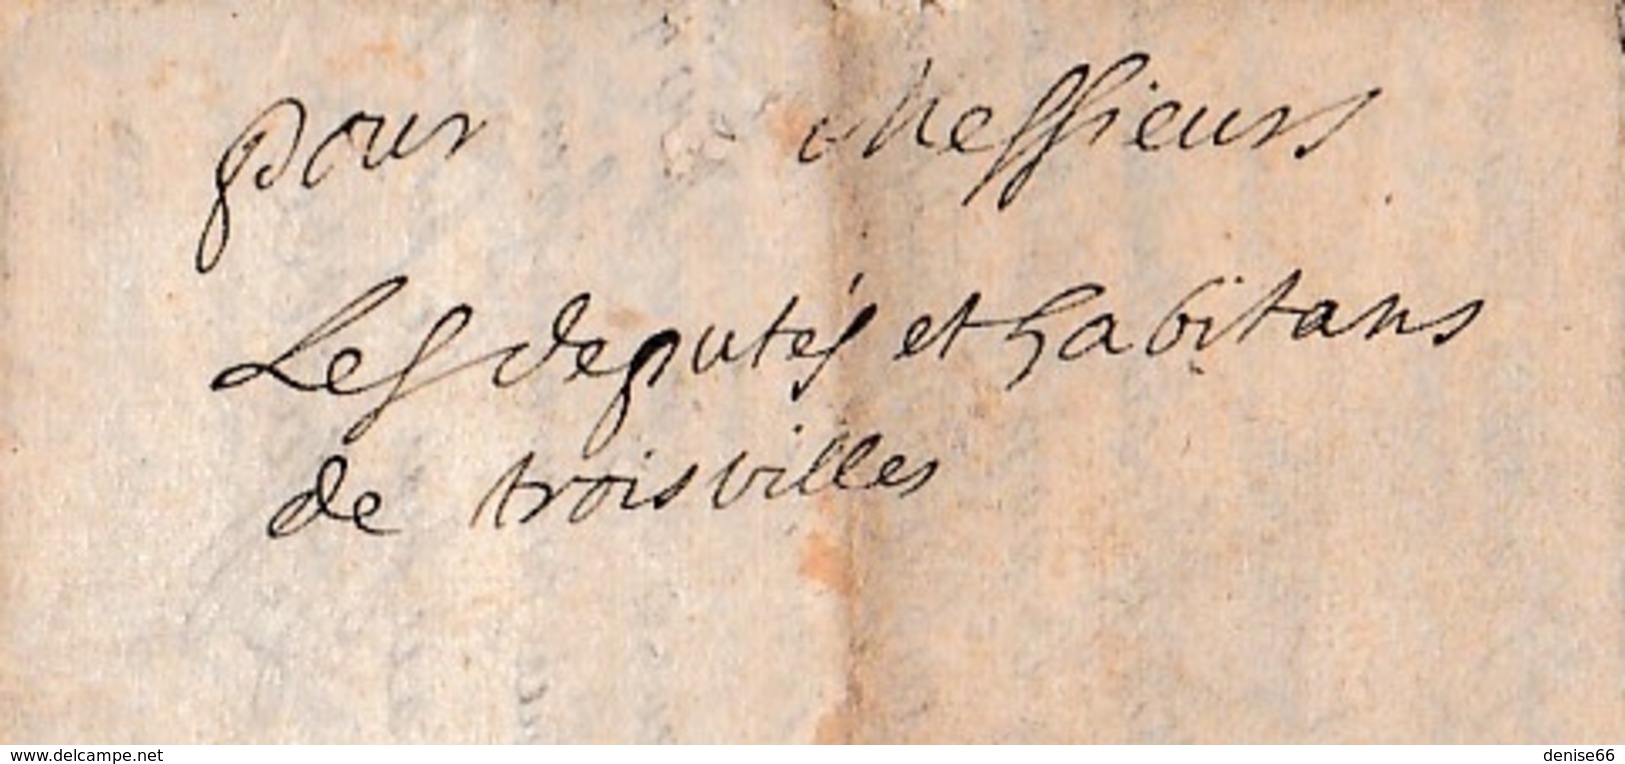 pour Messieurs
Les deputés et habitans
de troisvilles
www.delcampe.net
denise66